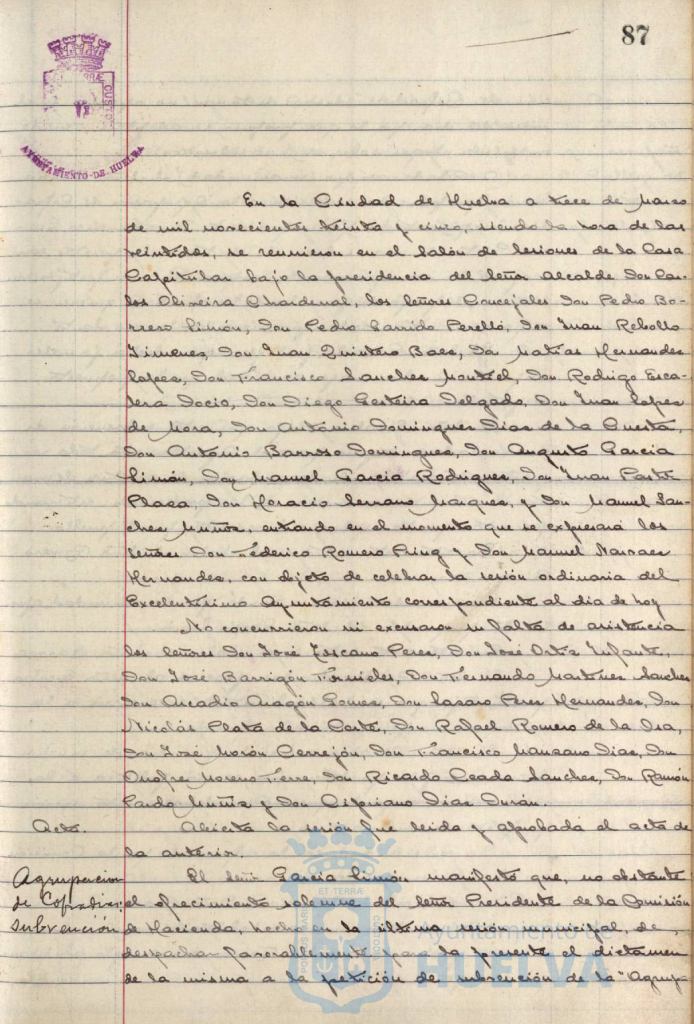 87
AYUNTAMIENTO-DE-HUELVA
En la Ciudad de Huelva a trece de Marzo
de mil novecientos treinta y cinco, siendo la hora de las
veintidos, se reunieron en el Salón de Sesiones de la Casa
Capitular bajo la presidencia del Señor Alcalde Don Car-
los Oliveira Chardenal, los Señores Concejales Don Pedro Bo-
rrero Limón, Don Pedro Garrido Perelló, Don Juan Rebollo
Jimenez, Don Juan Quintero Baez, Don Matías Hernandez
Lopez, Don Francisco Sanchez Montiel, Don Rodrigo Esca-
cera Socio, Don Diego Gesteira Delgado, Don Juan Lopez
de Mora, Don António Dominguez Diaz de la Cuesta,
Don António Barroso Dominguez, Don Augusto García
Limón, Don Manuel García Rodriguez, Don Juan Pastor
Plaza, Don Horacio Serrano Marquez, y Don Manuel San-
chez Muñoz, entrando en el momento que se expresará los
Señores Don Féderico Romero Pring y Don Manuel Narvaez
Hernandez, con objeto de celebrar la sesión ordinaria del
Excelentísimo Ayuntamiento correspondiente al dia de hoy
No concurrieron ni excusaron su falta de asistencia
los Señores Don José Toscano Perez, Don José Ortiz Infante,
Don José Barrigón Fornieles, Don Fernando Martinez Sanchez
Don Arcadio Aragón Gomez, Don Lazaro Perez Hernandez, Don
Nicolás Plata de la Corte, Don Rafael Romero de la Osa,
Don José Morón Cerrejón, Don Francisco Manzano Diaz, Don
Onofre Moreno Ferre, Don Ricardo Ceada Sanchez, Don Ramón
Pardo Muñiz y Don Cipriano Diaz Durán.
Acta.
Abierta la sesión fue leida y aprobada el acta de
la anterior.
Agrupacion
de Cofradias,
subvención
El Señor García Limón manifestó que, no obstante
el ofrecimiento solemne del Señor Presidente de la Comisión
de Hacienda, hecho en la última sesión municipal, de
despachar favorablemente para la presente el dictamen
de la misma a la petición de subvención de la "Agrupa-
Ayuntamiento de
HUELVA